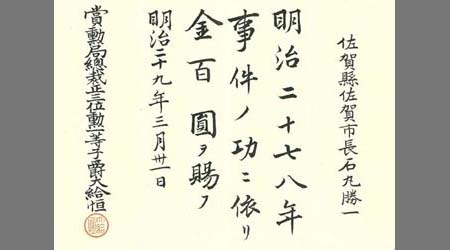 佐賀縣佐賀市長石丸勝一
明治二十七八年
事件ノ功ニ依リ
金百圓ヲ賜フ
明治二十九年三月卅一日
賞勳局總裁正三位勳一等子爵大給恒